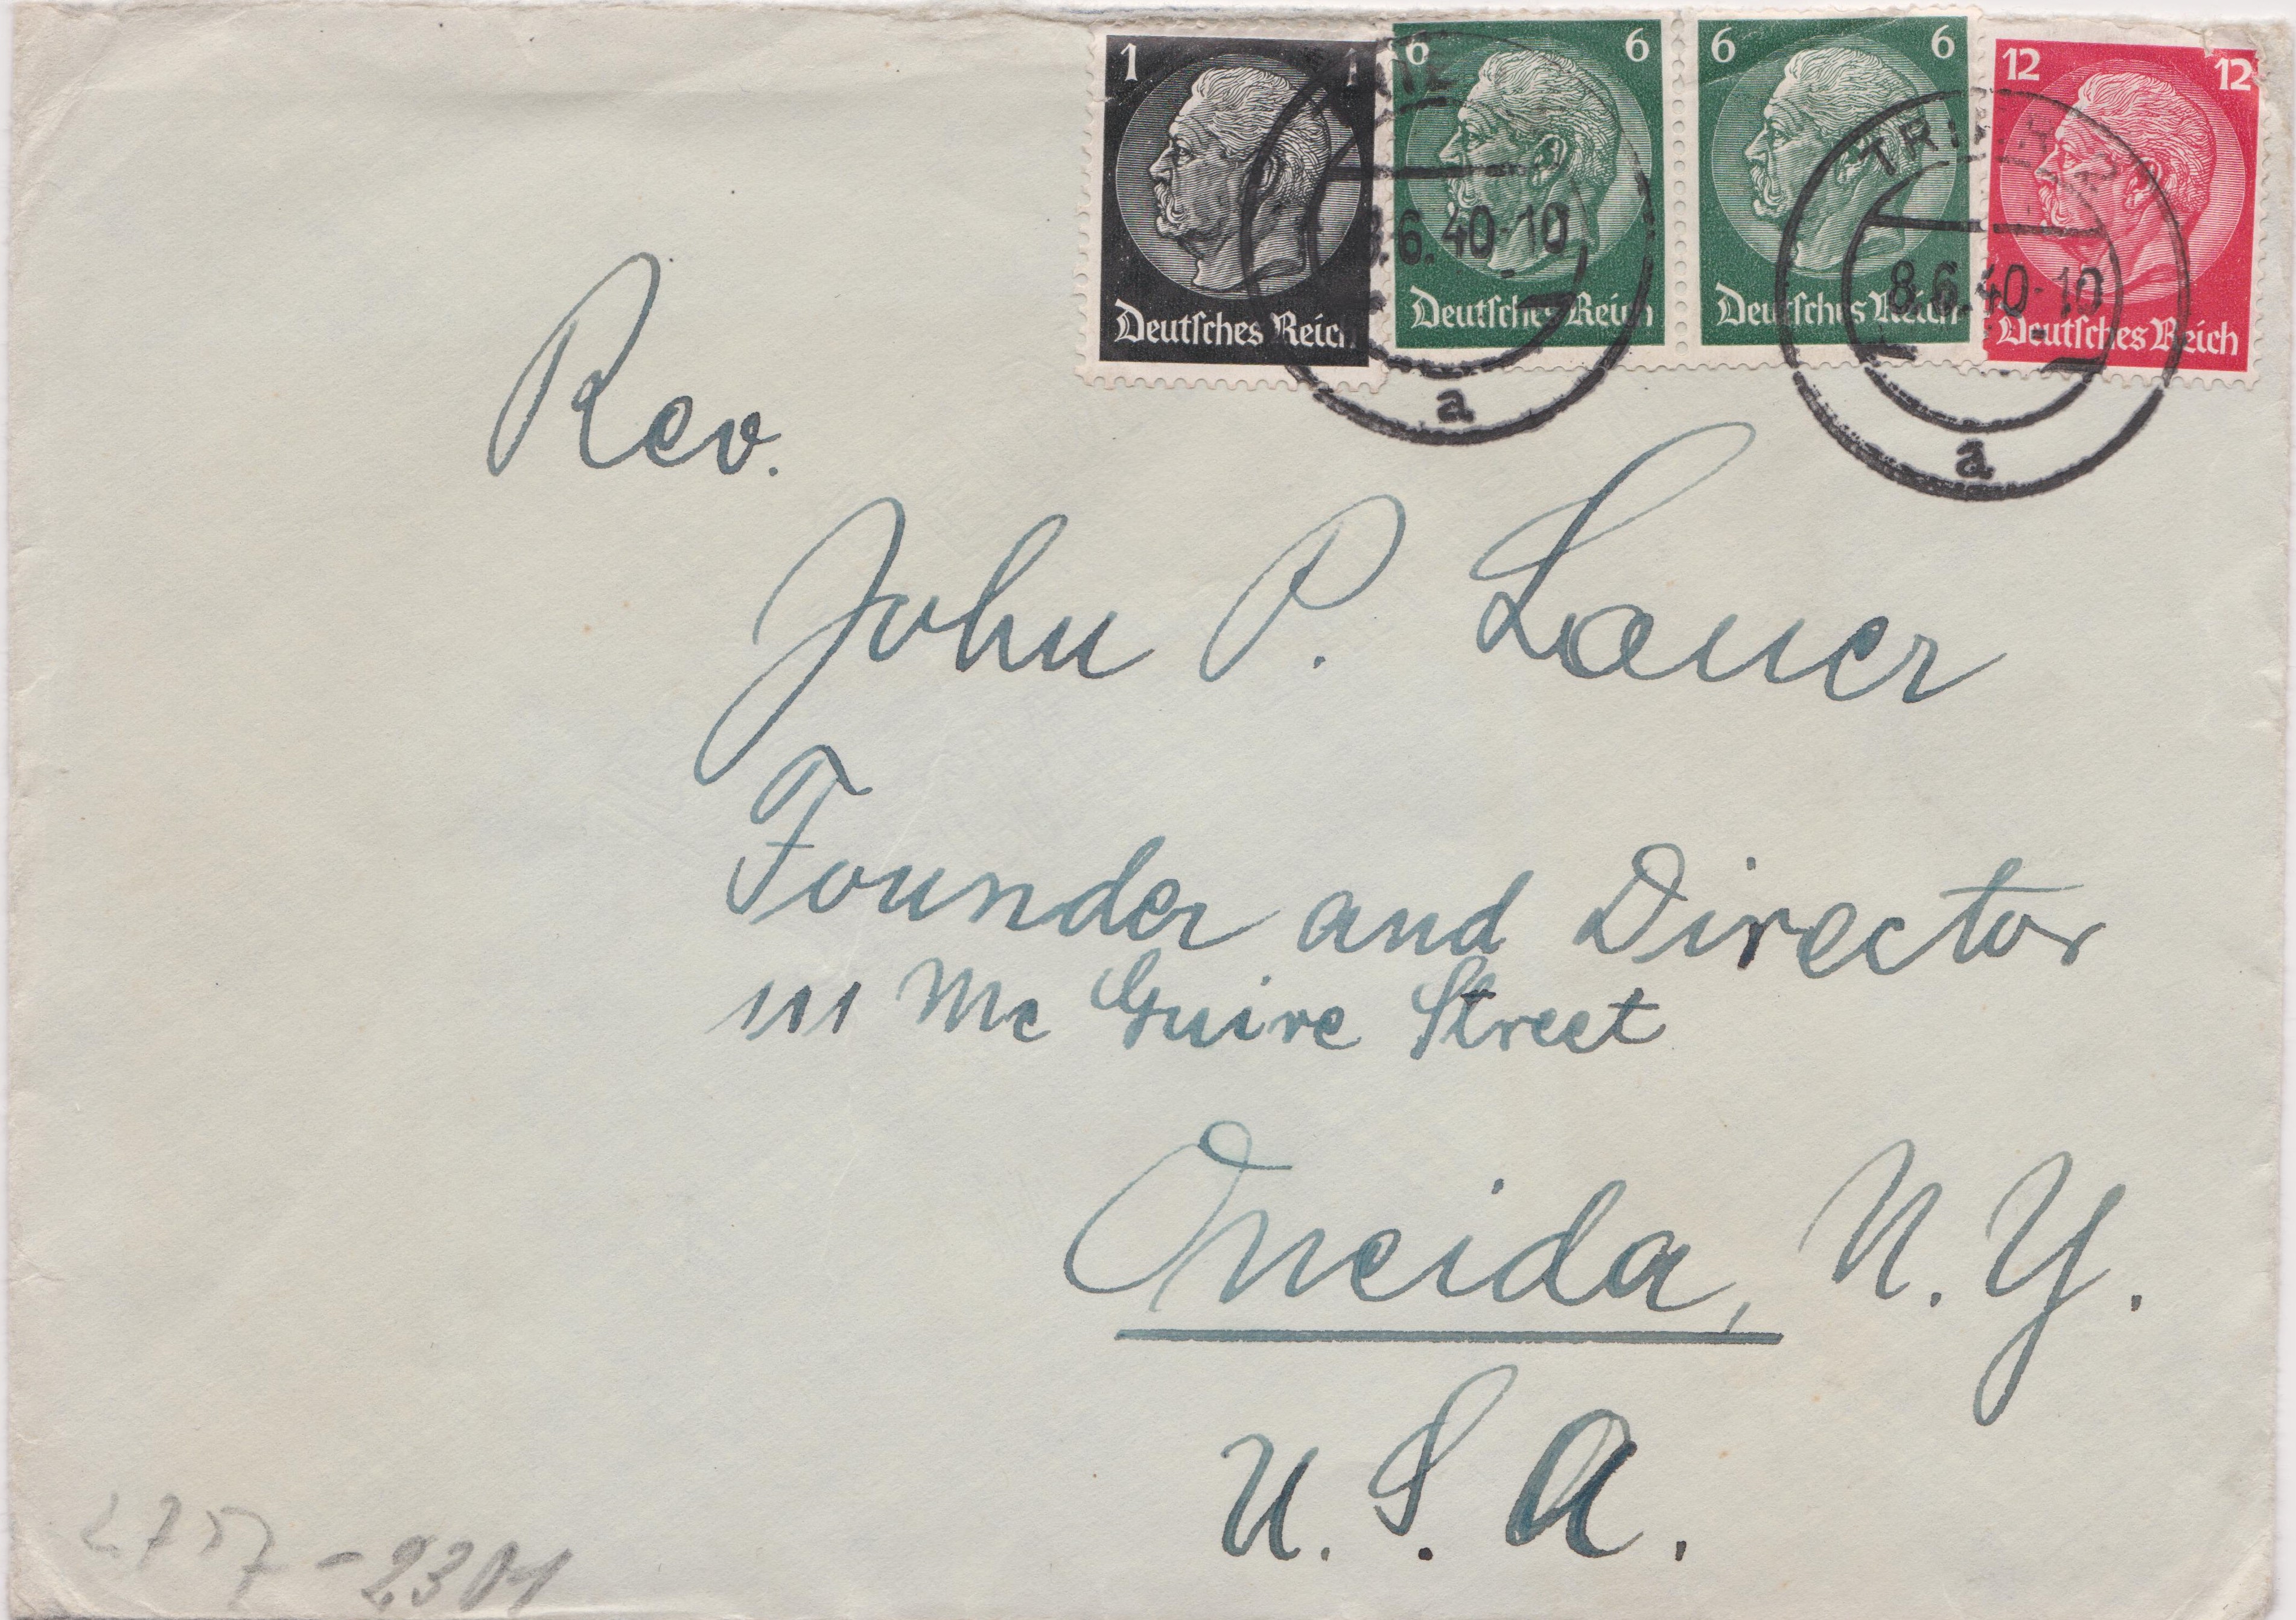 1 1 6 6 6 6 12 12
Deutsches Reich Deutsches Reich Deutsches Reich Deutsches Reich
.6.40-10
a
8.6.40-10
a
Rev.
John P. Lauer
Founder and Director
111 Mc Guire Street
Oneida, N. Y.
U. S. A.
-2301